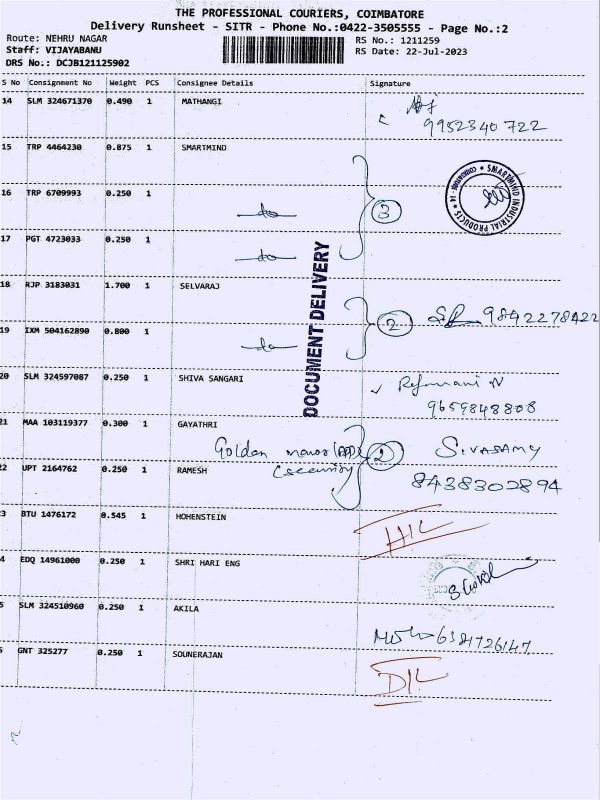 THE PROFESSIONAL COURIERS, COIMBATORE
Delivery Runsheet - SITR - Phone No.:0422-3505555 - Page No.:2
Route: NEHRU NAGAR
RS No.: 1211259
Staff: VIJAYABANU
RS Date: 22-Jul-2023
DRS No.: DCJB121125902
S No Consignment No Weight PCS Consignee Details Signature
14 SLM 324671370 0.490 1 MATHANGI
9952340722
15 TRP 4464230 0.875 1 SMARTMIND
SMARTMIND INDUSTRIAL PRODUCTS * COIMBATORE - 14 *
16 TRP 6709993 0.250 1 do 3
17 PGT 4723033 0.250 1 do
DOCUMENT DELIVERY
18 RJP 3183031 1.700 1 SELVARAJ
2 9842278422
19 IXM 504162890 0.800 1 do
20 SLM 324597087 0.250 1 SHIVA SANGARI
9659848808
21 MAA 103119377 0.300 1 GAYATHRI
Golden manor 2 SIVASAMY
22 UPT 2164762 0.250 1 RAMESH
(security 8438302894
3 BTU 1476172 0.545 1 HOHENSTEIN
HIL
4 EDQ 14961000 0.250 1 SHRI HARI ENG
5 SLM 324510960 0.250 1 AKILA
6381726147
5 GNT 325277 0.250 1 SOUNERAJAN
DIL